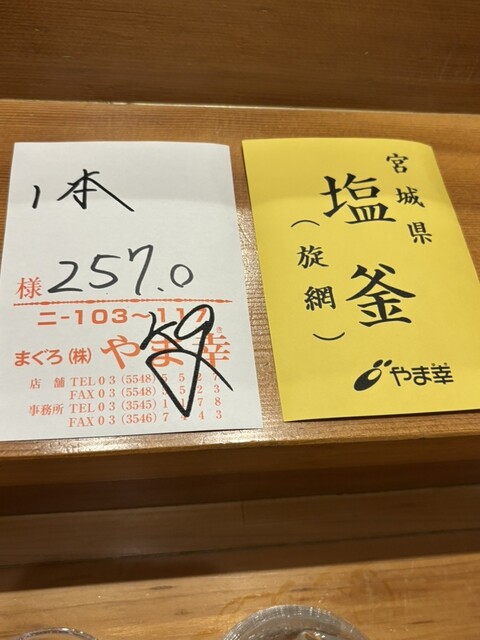 1本
様 257.0
kg
ニ-103〜117
まぐろ(株) やま幸
店舗 TEL03(5548)5527
FAX03(5548)5523
事務所 TEL03(3545)1178
FAX03(3546)7443
宮城県
塩釜
(旋網)
やま幸